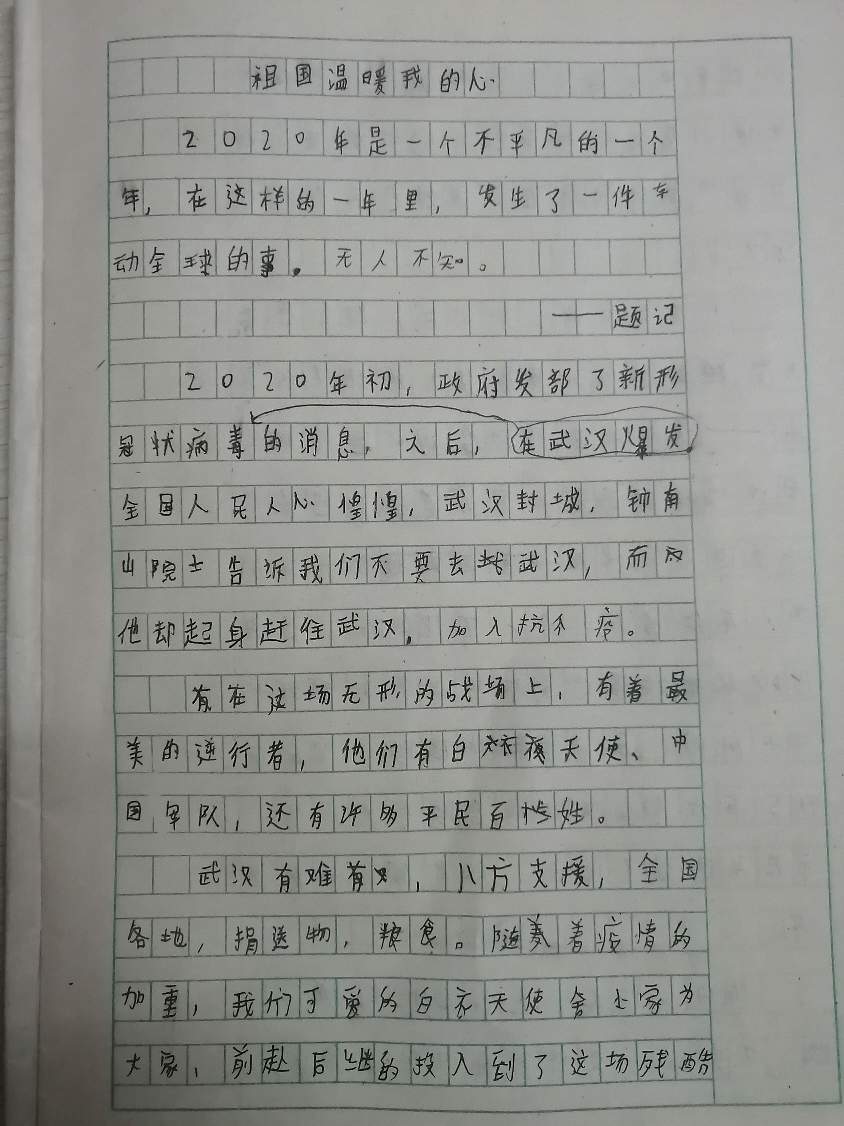 祖国温暖我的心
2020年是一个不平凡的一个
年,在这样的一年里,发生了一件车
动全球的事。无人不知。
——题记
2020年初,政府发部了新形
冠状病毒的消息,之后,在武汉爆发。
全国人民人心惶惶,武汉封城,钟南
山院士告诉我们不要去武汉,而
他却起身赶往武汉。加入抗疫。
在这场无形的战场上,有着最
美的逆行者,他们有白衣天使、中
国军队,还有许多平民百姓。
武汉有难,八方支援,全国
各地,捐送物,粮食。随着疫情的
加重,我们可爱的白衣天使舍小家为
大家,前赴后继的投入到了这场残酷